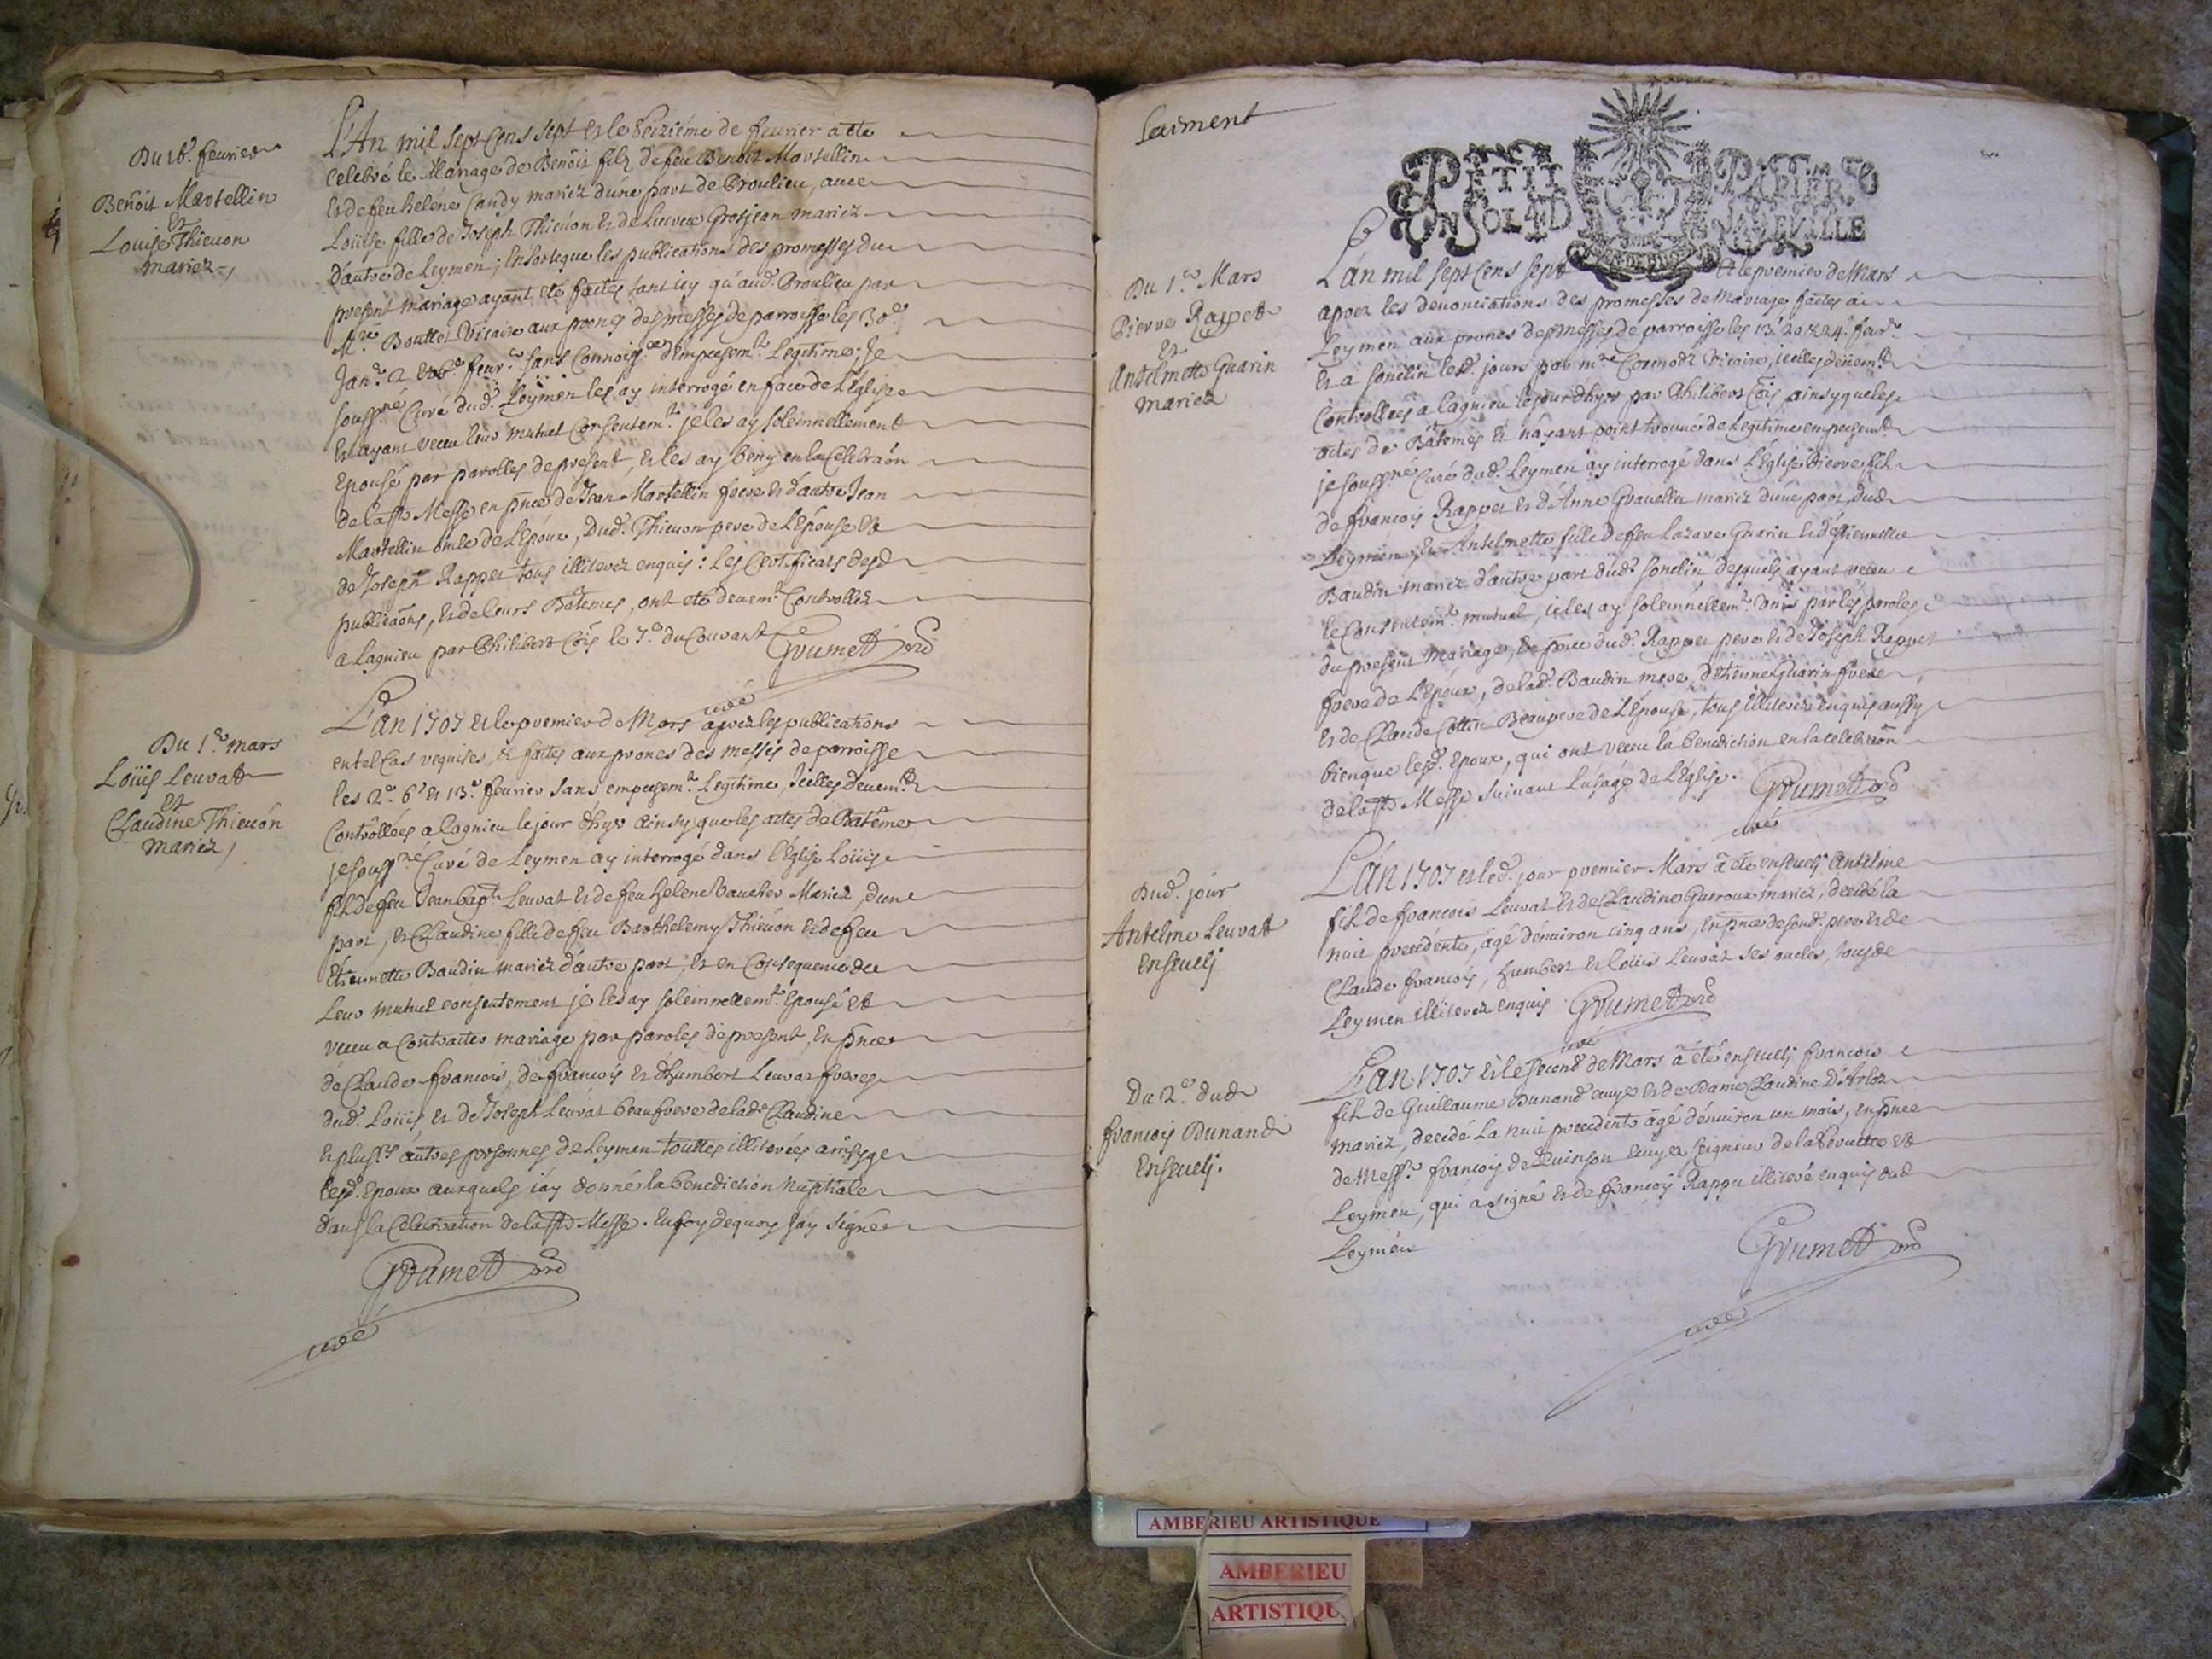 Du 16.e feurier
Benoit Martellin
Et
Louise Thieuon
mariez
L'An mil sept Cens sept et le seizième de feurier a ete
Celebré le Mariage de Benoit filz de feu Benoit Martellin
Et de feu helene Candy mariez d'une part de Proulieu, auec
Loüise fille de Joseph Thieuon Et de Grosjean mariez
d'autre de Leymen; Ensorteque les publications des promesses du
present mariage ayant ete faites tant icy qu'aud. Proulieu par
M.re Bouttet Vicaire aux prones des messes de parroisse les 30.e
Jan.r 2 Et 6.e feur.r sans Connoiss.ce d'empesem.t Legitime; Je
souss.né Curé dud. Leymen les ay interrogé en face de L'Eglise
Et ayant receu leur mutuel Consentem.t je les ay solemnellement
Epousé par parolles de present, Et les ay beny en la Celebraõn
de la s.te Messe en pñce de Jean Martellin frere Et d'autre Jean
Martellin oncle de L'Epoux, Dud. Thieuon pere de L'Epouse Et
de Joseph Rappet tous illiterez enquis: Les Certificats desd
publicaõns, Et de leurs Batemes, ont ete deuem.t Controllez
a Lagnieu par Philibert Coïs le 7.e du Courant Grumet
curé
Du 1.er mars
Loüis Leuvat
Et
Claudine Thieuón
Mariez
L'an 1707 Et le premier de Mars aprez les publications
en tel Cas requises, Et faites aux prones des messes de parroisse
les 2.e 6.e Et 13.e feurier sans empesem.t Legitime, Icelles deuem.t
Controllées a Lagnieu le jour d'hyer ainsy que les actes de Bateme
je souss.né Curé de Leymen ay interrogé dans l'Eglise Loüis
fils de feu Jean bap.te Leuvat Et de feu helene Vaucher Mariez, dune
part, Et Claudine fille de feu Barthelemy Thieuón Et de feu
Etiennette Baudin mariez d'autre part, Et en Consequence de
Leur mutuel consentement je les ay solemnellem.t Epousé Et
receu a Contracter mariage par paroles de present, En pñce
de Claude francois, de francois Et d'humbert Leuvat freres
dud. Loüis, Et de Joseph Leuvat beaufrere de lad.e Claudine
Et plus.rs autres personnes de Leymen touttes illiterées ainsy que
lesd. Epoux auxquels j'ay donné la benediction Nuptiale
dans la Celebration de la s.te Messe. En foy dequoy j'ay Signé
Grumet
curé
PETIT PAPIER
ONSOL 4 D VILLE
Du 1.er Mars
Pierre Rappet
Et
Antelmette Guarin
mariez
L'an mil sept Cens sept Et le premier de Mars
aprez les denonciations des promesses de Mariage faites a
Leymen aux prones des messes de parroisse les 13.e 20 & 24.e feur.r
Et a Sonclin lesd. jours par m.re Vicaire, icelles deüem.t
Controllées a Lagnieu le jour d'hyer par Philibert Coïs, ainsy que les
actes de Batemes Et n'ayant point trouué de Legitime empesem.t
je souss.né Curé dud. Leymen ay interrogé dans L'Eglise Pierre fils
de francois Rappet Et d'Anne Grauellu mariez d'une part, dud
Leymen, Et Antelmette fille de feu Lazare Guarin Et d'Etiennette
Baudin mariez d'autre part dud. Sonclin desquels ayant receu
le Consentem.t mutuel, je les ay solemnellem.t vnis par les paroles
du present Mariage, En pñce dud. Rappet pere Et de Joseph Rappet
frere de L'Epoux, de lad. Baudin mere, d'Etienne Guarin frere
Et de Claude Collin Beaupere de L'Epouse, tous illiterez enquis aussy
bien que lesd. Epoux, qui ont receu la benediction en la celebraõn
de la s.te Messe Suiuant L'usage de L'Eglise. Grumet
curé
Dud. jour
Antelme Leuvat
Enseueli
L'an 1707 et led. jour premier Mars a ete enseueli Antelme
fils de francois Leuvat Et de Claudine Guerour mariez, decedé la
nuit precedente, agé d'enuiron cinq ans, En pñce de sond. pere Et de
Claude francois, humbert Et Loüis Leuvat ses oncles, tous de
Leymen illiterez enquis Grumet
curé
Du 2.e dud
francois Dunand
Enseueli.
L'an 1707 Et le second de Mars a été enseueli francois
fils de Guillaume Dunand Et de Dame Claudine D'Arloz
mariez, decedé la nuit precedente agé d'enuiron un mois, en pñce
de Mess.re francois de Quinson Seigneur de la Et
Leymen, qui a signé Et de francois Rappet illiteré enquis dud
Leymen Grumet
curé
AMBERIEU ARTISTIQUE
AMBERIEU
ARTISTIQU